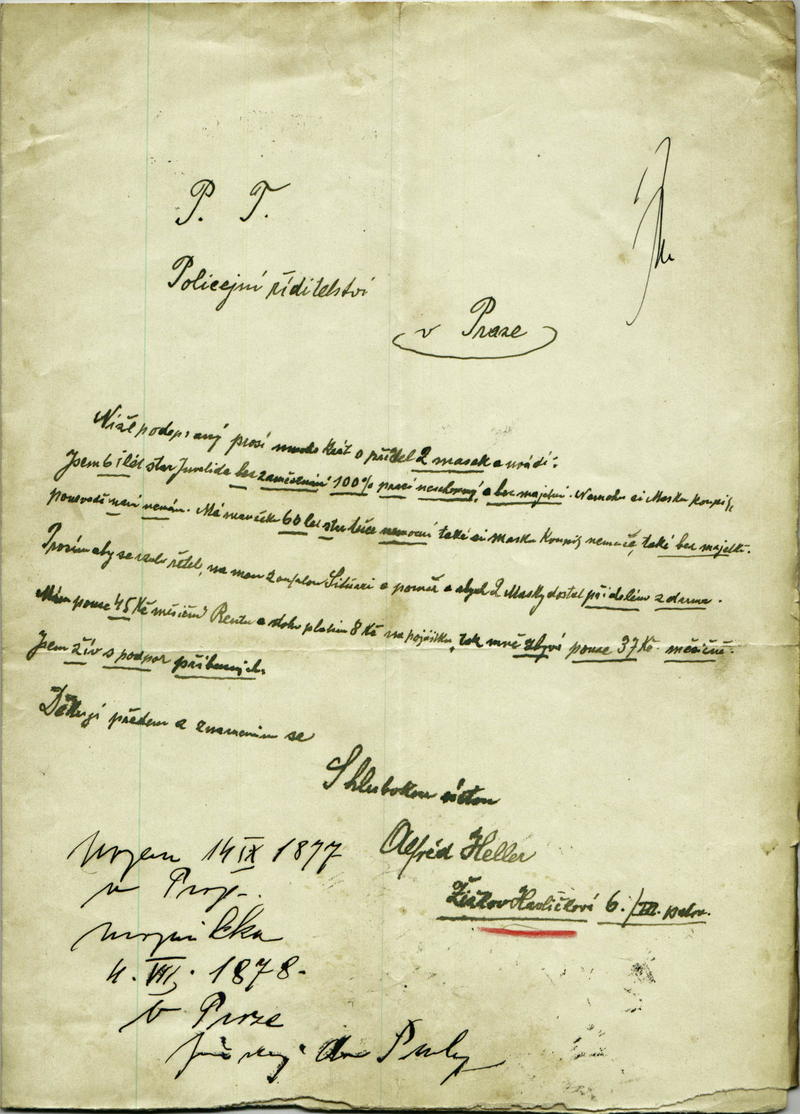 P. T.
Policejní říditelství
v Praze
Níže podepsaný prosí mnoho krát o příděl 2 masek a uvádí:
Jsem 61 let star Invalida bez zaměstnání 100% práci neschopný, a bez majetní. Nemohu si Masku koupit,
poněvadž není nemám. Má manželka 60 let stará těžce nemocná také si masku koupit nemůže, také bez majetku.
Prosím aby se vzalo zřetel, na mou zoufalou Situaci a poměr a abych 2 Masky dostal přiděleny zdarma.
Mám pouze 45 Kč měsíčně Rentu a z toho platím 8 Kč na pojistku, tak mně zbývá pouze 37 Kč měsíčně.
Jsem živ s podpor příbuzných.
Děkuji předem a znamenám se
S hlubokou úctou
Alfréd Heller
Žižkov Havlíčkova 6./III. patro.
14 IX 1877
v
4. VII. 1878.
v Praze